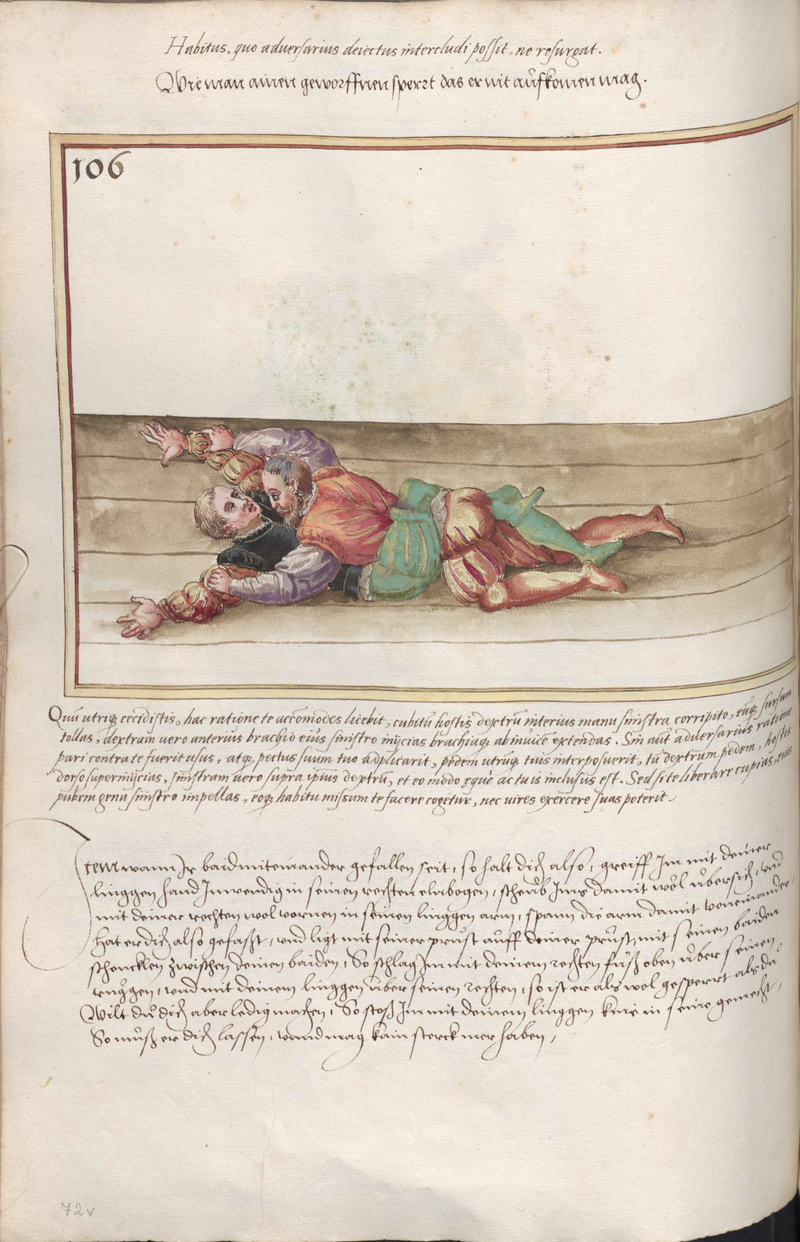 Habitus, quo adversarius deiectus intercludi possit, ne resurgat.
Wie man ainen geworffnen sperrt das er nit aufkomen mag.
106
Quũ utriq; cecidistis, hac ratione te accõmodes licebit, cubitũ hostis dextrũ interius manu sinistra corripito, eũq; sursum
tollas, dextram vero anterius brachio eius sinistro inijcias brachiaq; abinvicẽ extendas. Sin aut adversarius ratione
pari contra te fuerit usus, atq; pectus suum tuo adplicarit, pedem utriusq; tuis interposuerit, tu dextrum pedem, hostis
dorso superinijcias, sinistram vero supra ipsius dextrũ, et eo modo eque actu is inclusus est. Sed si te liberare cupias, eius
pubem genu sinistro impellas, eoq; habitu missum te facere cogetur, nec vires exercere suas poterit.
Item wann Ir baid miteinander gefallen seit, so halt dich also, greiff Im mit deiner
linggen hand Inwendig in seinen rechten elnbogen, scheub Ims damit wol ubersich, und
mit deiner rechten wol vornen in seinen linggen arm, spann die arm damit voneinander,
hat er dich also gefaßt, und ligt mit seiner prust auff deiner prust, mit seinen baiden
schencklen zwischen deinen baiden, So schlag Im mit deinem rechten fuß oben uber seinen
ruggen, und mit deinem linggen uber seinen rechten, so ist er als wol gesperrt als du
Wilt du dich aber ledig machen, So stoß Im mit deinem linggen knie in seine gemecht,
So muß er dich lassen, unnd mag kain sterck mer haben,
72v